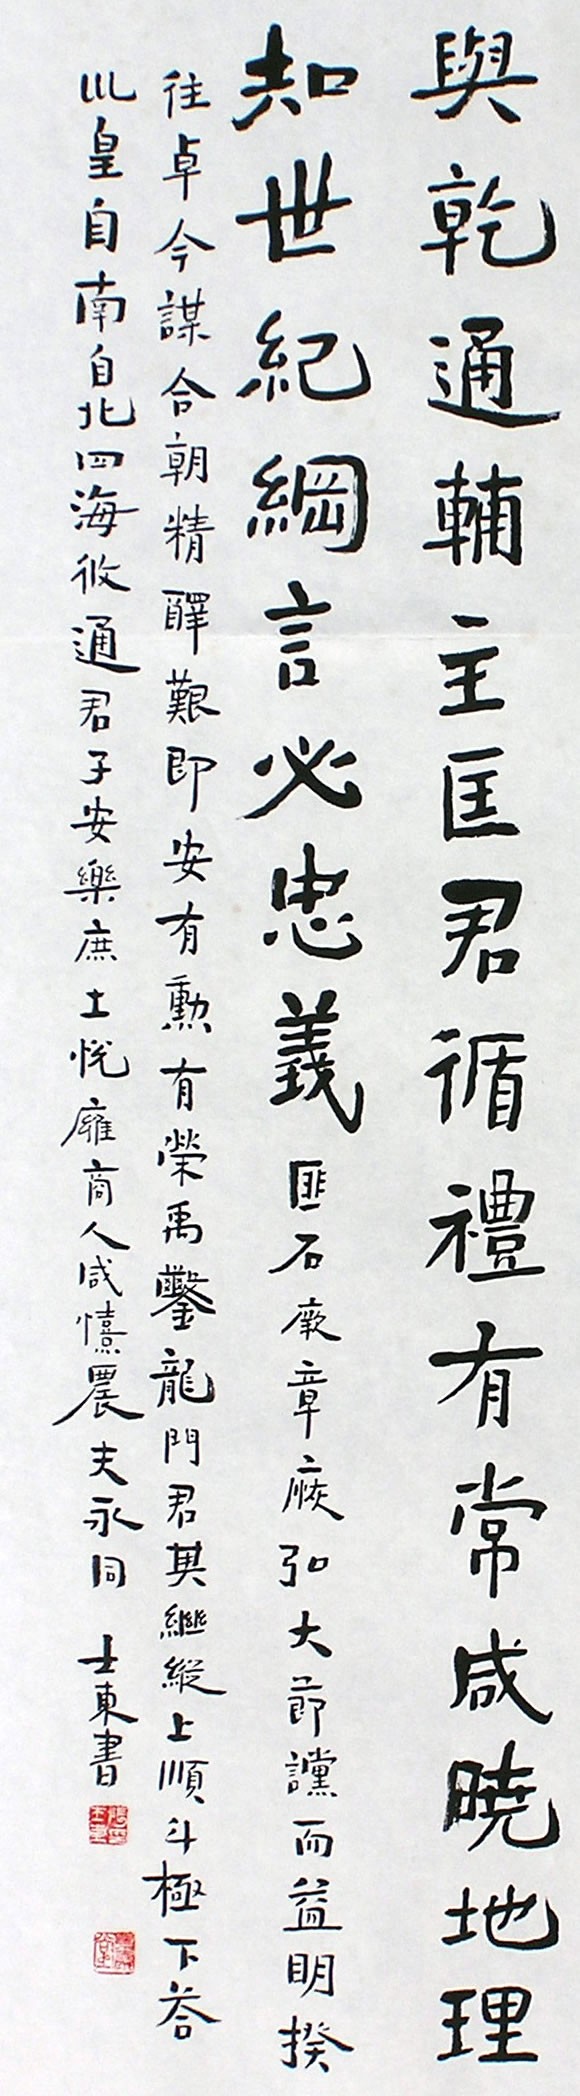 與乾通輔主匡君循禮有常咸曉地理
知世紀綱言必忠義匪石厥章厥弘大節讜而益明揆
往卓今謀合朝精醳艱即安有勲有榮禹鑿龍門君其繼縱上順斗極下荅
巛皇自南自北四海攸通君子安樂庶士悅廱商人咸憘農夫永同
士東書